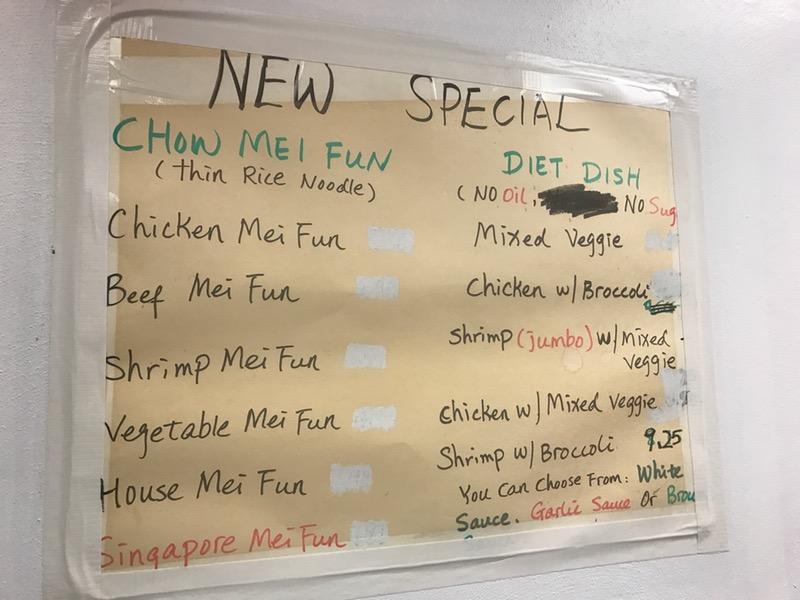 NEW SPECIAL
CHOW MEI FUN
(Thin Rice Noodle)
Chicken Mei Fun
Beef Mei Fun
Shrimp Mei Fun
Vegetable Mei Fun
House Mei Fun
Singapore Mei Fun
DIET DISH
(NO Oil, NO Sug
Mixed Veggie
Chicken w/ Broccoli
Shrimp (jumbo) w/ Mixed
Veggie
Chicken w/ Mixed Veggie
Shrimp w/ Broccoli 9.25
You Can Choose From: White
Sauce. Garlic Sauce Or Brow